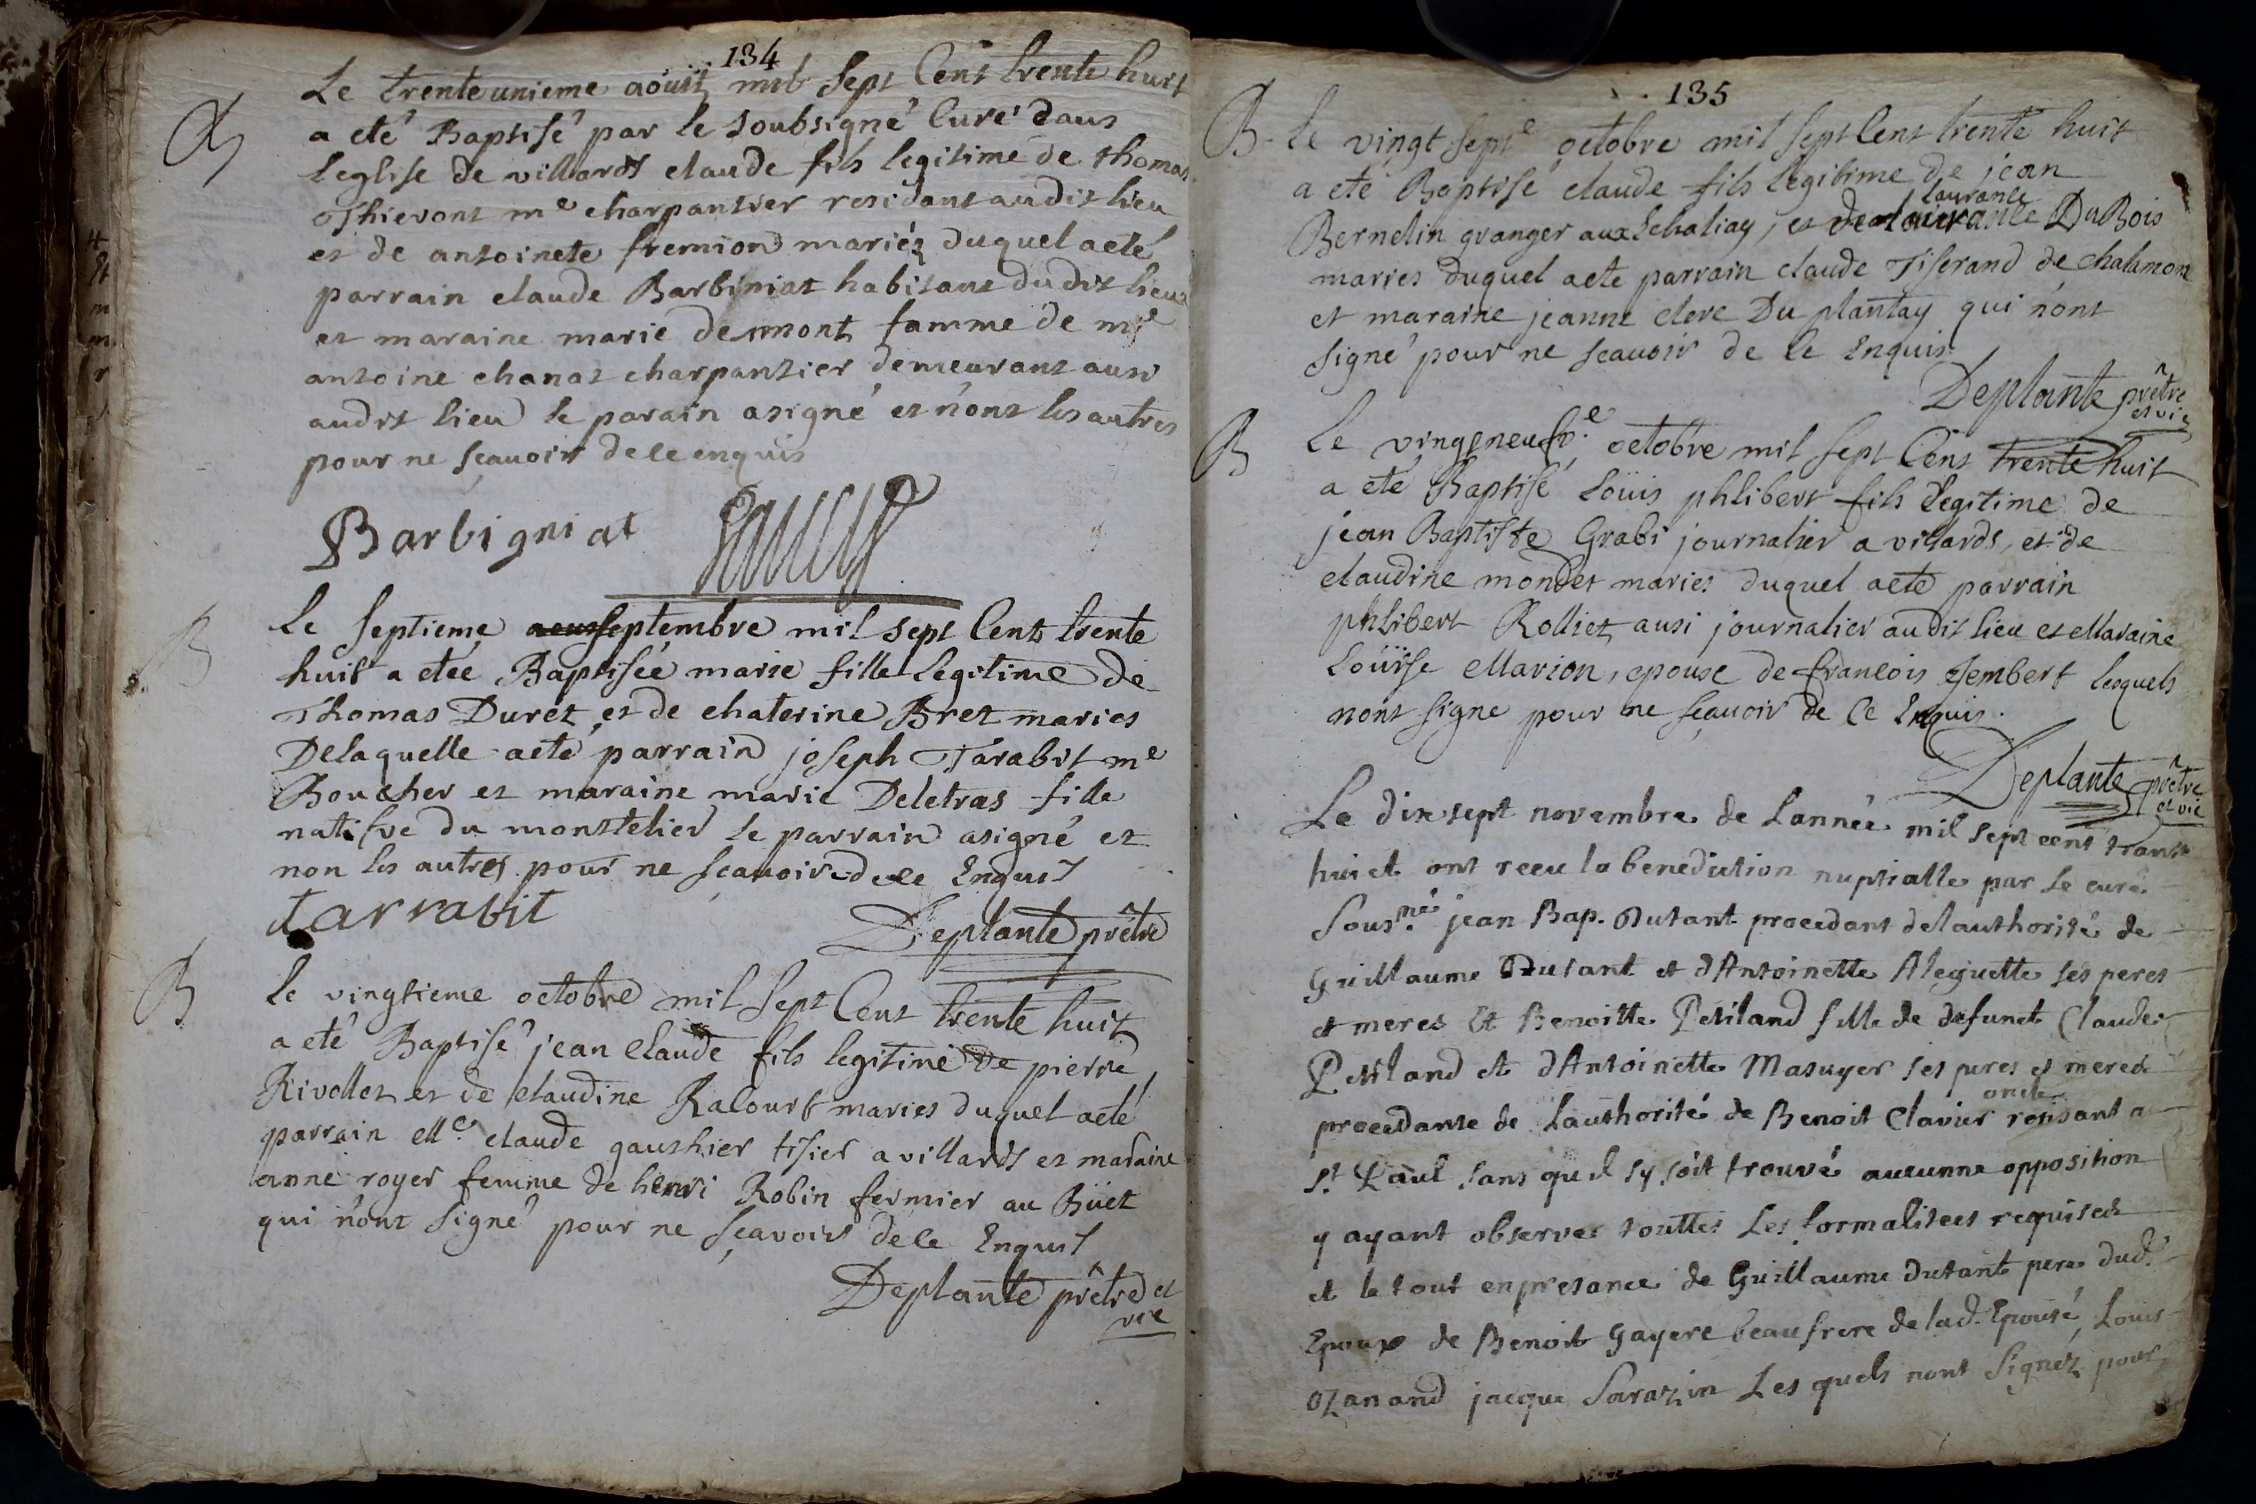 134
Le trente unieme aoust mil sept Cent trente huit
B
a eté Baptisé par le soubsigné Curé dans
leglise de villards claude fils legitime de thomas
Thievont me charpantier residant audit lieu
et de antoinete fremiond mariéz duquel aeté
parrain claude Barbiniat habitant dudit lieu
et maraine marie demont famme de me
antoine chanat charpantier demeurant ausi
audit lieu le parain asigné et n'ont les autres
pour ne sçauoir de ce enquis
Barbigniat
B
le septieme septembre mil sept Cent trente
huit a etée Baptisée marie fille legitime de
Thomas Duret et de chaterine Bret maries
Delaquelle aeté parrain joseph Tarabit me
Boucher et maraine marie Deletras fille
natifve du montelier le parrain asigné et
non les autres pour ne sçauoir de ce Enquis
tarrabit
Deplante prêtre
B
le vingtieme octobre mil sept Cent trente huit
a eté Baptisé jean claude fils legitime de pierre
Rivollet et de claudine Racourt maries duquel aeté
parrain Me claude gauthier tisier a villards et maraine
anne royer femme de henri Robin fermier au Büet
qui n'ont signé pour ne sçavoir de ce Enquis
Deplante prêtre et
vic
135
B. Le vingt septe octobre mil sept Cent trente huit
a eté Baptisé claude fils legitime de jean
laurance
Bernelin granger aux Echaliay, et de DuBois
maries duquel aeté parrain claude Tiserand de chalamon
et maraine jeanne clerc Du plantay qui n'ont
signé pour ne scauoir de ce Enquis
Deplante prêtre
et vic
B
Le vingtneufv.e octobre mil sept Cent trente huit
a eté Baptisé Loüis phlibert fils legitime de
jean Baptiste Grabi journalier a villards, et de
claudine mondet maries duquel aeté parrain
phlibert Rolliet ausi journalier audit lieu et Maraine
Loüise Marion, epouse de francois Jembert lesquels
nont signe pour ne sçauoir de Ce Enquis.
Deplante prêtre
et vic
Le dix sept novembre de Lannée mil sept cent trante
huict ont receu la benediction nuptialle par le curé
Sous.né jean Bap. Dutant procedant de lauthorité de
Guillaume Dutant et dAntoinette Aleguette ses peres
et meres Et Benoitte Petiland fille de defunct Claude
Petiland et dAntoinette Masuyer ses peres et meres
oncle
procedante de Lauthorité de Benoit Clavier resisant a
St Paul sans quil sy soit trouvé aucunne opposition
y ayant observer touttes Les formalitees requises
et le tout enpresance de Guillaume Dutant pere dud.
Epoux de Benoit Gayere beaufrere de lad. Epouse, Louis
Ozanand jacque Sarazin Les quels nont Signez pour